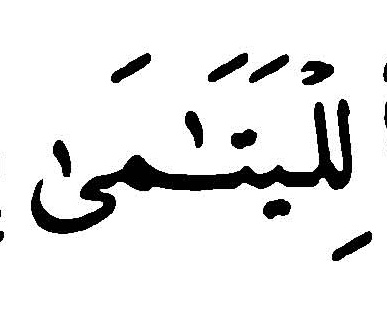 لِلْيَتَـٰمَىٰ